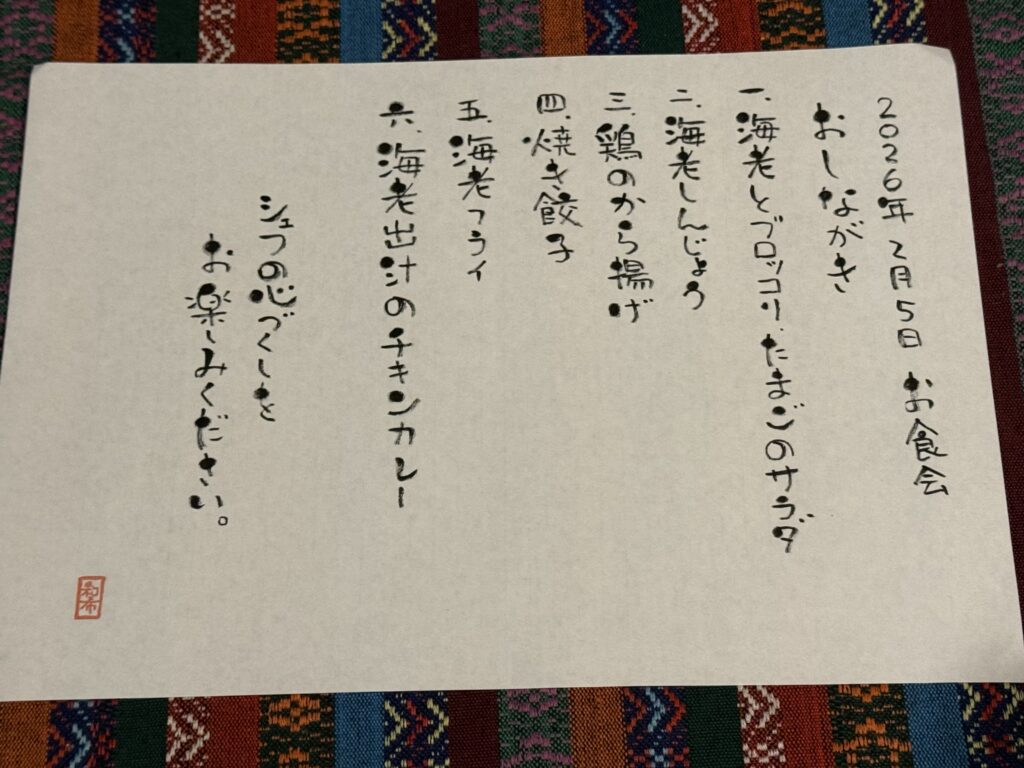 2026年2月5日 お食会
おしながき
一、海老とブロッコリ、たまごのサラダ
二、海老しんじょう
三、鶏のから揚げ
四、焼き餃子
五、海老フライ
六、海老出汁のチキンカレー
シェフの心づくしを
お楽しみください。
和布